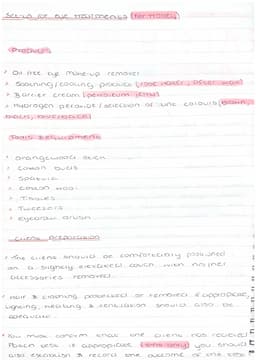 Setup of eye treatments (for model)
Products
> Oil free eye make-up remover
> Soothing/cooling product (rose water, after wax)
> Barrier cream (petroleum jelly)
> Hydrogen peroxide / selection of tint colours (brown,
Tools & equipment
> Orangewood stick
> Cotton buds
> Spatula
> Cotton wool
> Tissues
> Tweezers
> Eyebrow brush
Client preparation
> The client should be comfortably positioned
on a slightly elevated couch with
accessories removed.
> Hair & clothing protected or removed if appropriate,
lighting, heating & ventilation should also be
> You must confirm that the client has received
Patch test if appropriate you should
also establish & record the outcome of the test